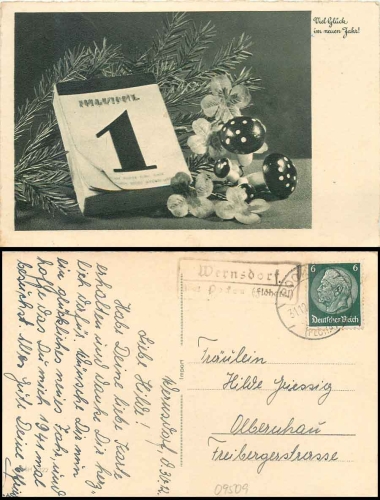 Viel Glück
im neuen Jahr!
1
Wernsdorf
(Flöhatal)
6 6
Deutsches Reich
Wernsdorf, d. 30.12.
Liebe Hilde!
Habe Deine liebe Karte
erhalten und danke Dir herz-
lich dafür. Wünsche Dir nun
ein glückliches neues Jahr, und
hoffe das Du mich 1941 mal
besuchst. Alles Gute Deine
Fräulein
Hilde
Olbernhau
Freibergerstrasse
09509